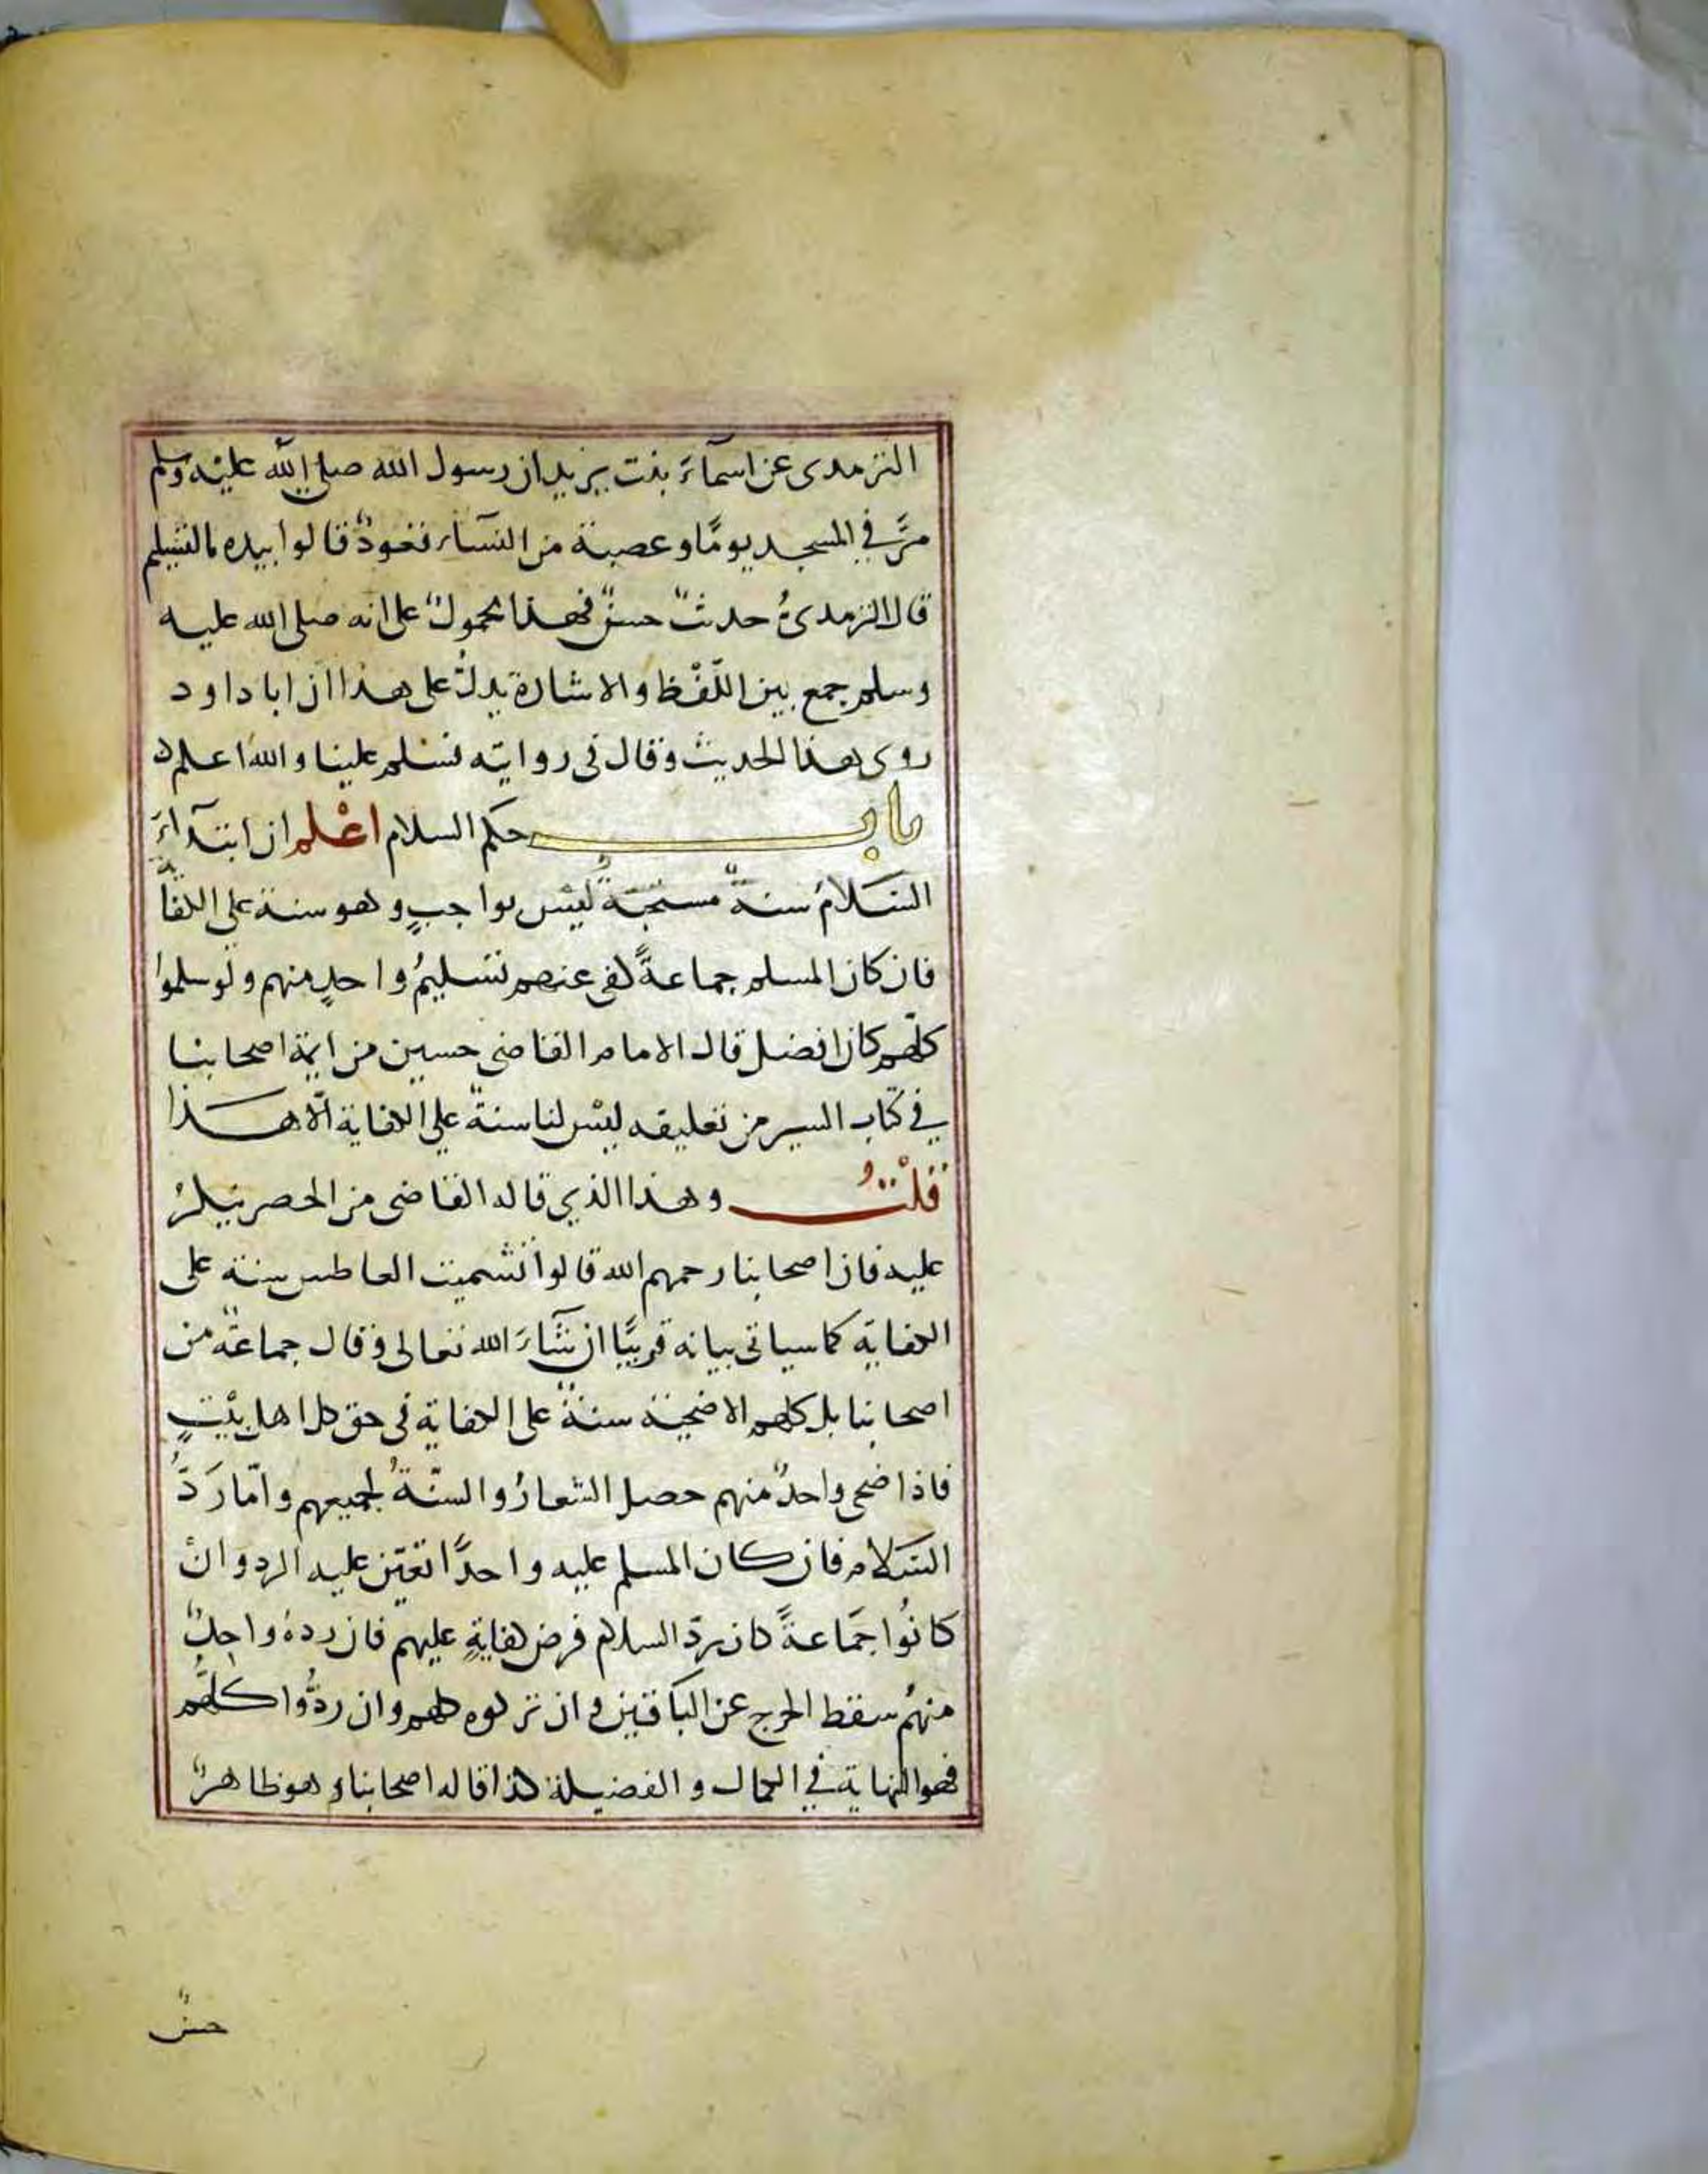 الترمدى عن اسمآءَ بنت يزيد ان رسول الله صلى الله عليْه وسلم
مرَّ في المسجد يومًا و عصبة من النسآء قعودٌ قالوا بيده بالتسليم
قال الترمدىُ حديثٌ حسنٌ فهذا محمولٌ على انه صلى الله عليه
وسلم جمع بين اللّفْظ والاشارة يدلّ على هذا ان ابا داود
روى هذا الحديث وقال فى روايته فسلم علينا والله اعلم
باب حكم السلام اعْلم ان ابتدآءَ
السَّلامُ سنةٌ مستحبّةٌ ليْس بواجبٍ وهو سنة على الكفاية
فان كان المسلم جماعةً كفى عنهم تسليمُ واحدٍ منهم ولو سلموا
كلّهم كان افضل قال الامام القاضى حسين من ايمة اصحابنا
في كتاب السير من تعليقه ليْس لنا سنةٌ على الكفاية الّا هذا
قُلْتُ وهذا الذي قاله القاضى من الحصر ينكرُ
عليه فان اصحابنا رحمهم الله قالوا تشميت العاطس سنة على
الكفاية كما سياتى بيانه قريبًا ان شآءَ الله تعالى وقال جماعةٌ من
اصحابنا بل كلهم الاضحية سنةٌ على الكفاية فى حق كل اهل بيْتٍ
فاذا ضحى واحدٌ منهم حصل الشعارُ والسنّةُ لجميعهم وامّا رَدُّ
السَّلام فان كان المسلم عليه واحدًا تعيّن عليه الرد وانْ
كانُوا جَمَاعةً كان ردّ السلام فرض كفايةٍ عليهم فان ردهُ واحدٌ
منهُم سقط الحرج عن الباقين وان تركوه كلهم وان ردُّوا كلّهُم
فهو النهاية في الكمال والفضيلة كذا قاله اصحابنا وهو ظاهرٌ
حسنٌ